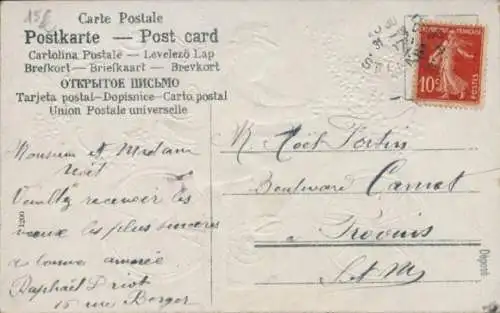 15f
Carte Postale
Postkarte — Post card
Cartolina Postale — Levelező Lap
Brefkort — Briefkaart — Brevkort
ОТКРЫТОЕ ПИСЬМО
Tarjeta postal - Dopisnice - Carto postal
Union Postale universelle
FRANÇAISE
10c
POSTES
Monsieur et Madame
Noël
Veuillez recevoir les
vœux les plus sincères
de bonne année
Raphaël Priot
15 rue Berger
M. Noël Fortin
Boulevard Carnot
à Provins
S. et M.
1200
Déposé